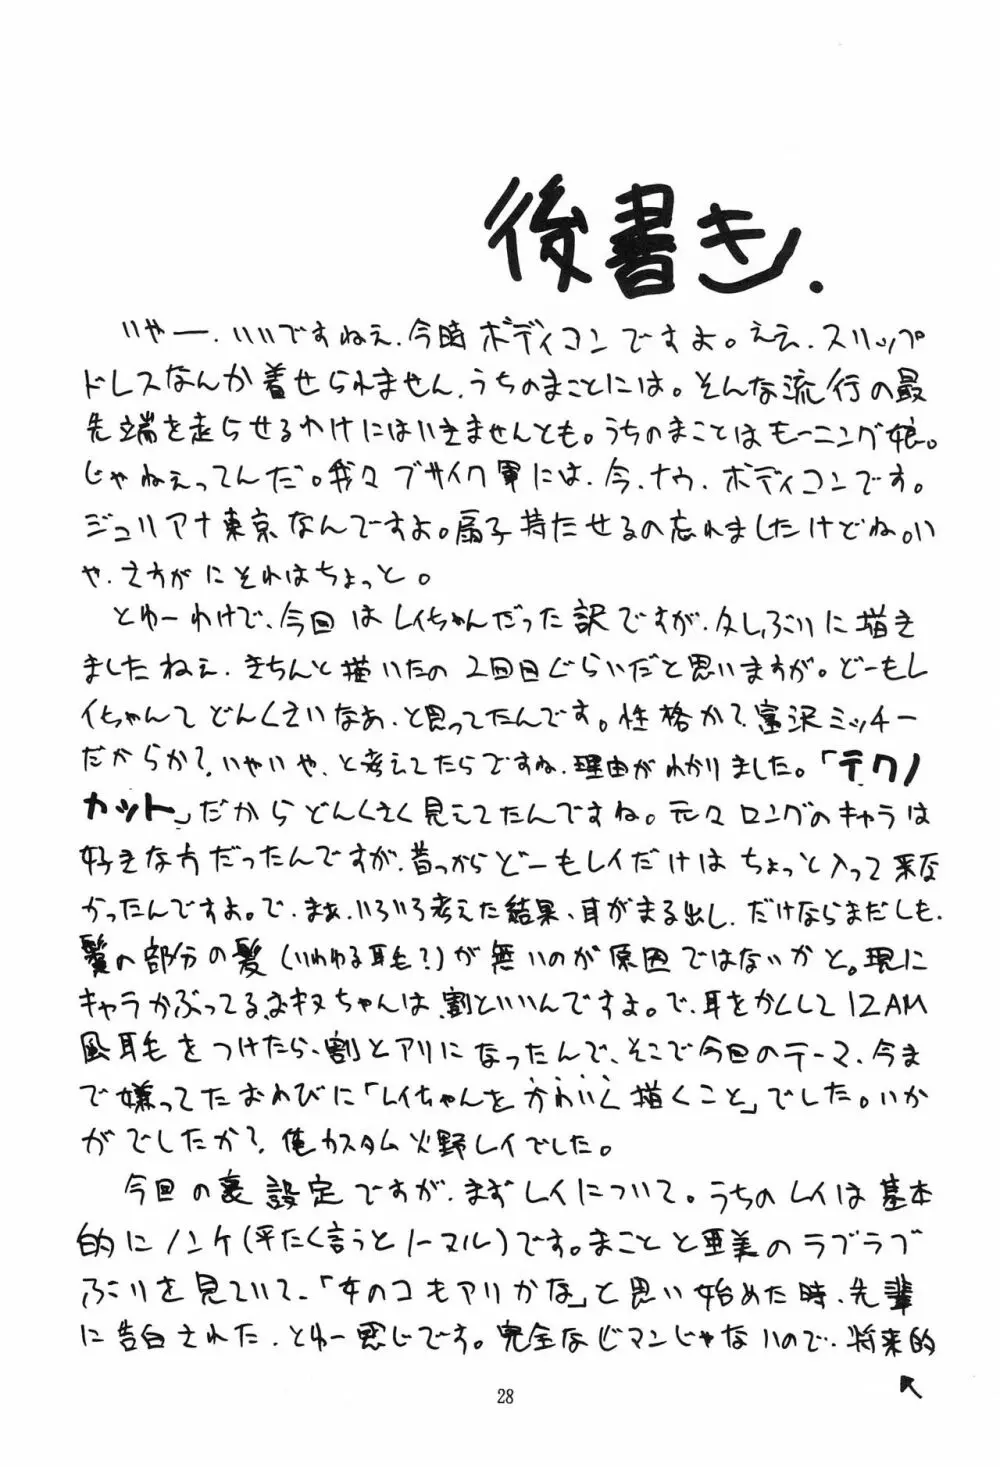 後書き.
いやー、いいですねえ、今時ボディコンですよ。ええ、スリップ
ドレスなんか着せられません、うちのまことには。そんな流行の最
先端を走らせるわけにはいきませんとも。うちのまことはモーニング娘。
じゃねぇってんだ。我々ブサイク軍には、今、ナウ、ボディコンです。
ジュリアナ東京なんですよ。扇子持たせるの忘れましたけどね。い
や、さすがにそれはちょっと。
とゆーわけで、今回はレイちゃんだった訳ですが、久しぶりに描き
ましたねぇ、きちんと描いたの2回目ぐらいだと思いますが。どーもレ
イちゃんてどんくさいなあ、と思ってたんです。性格か?富沢ミッチー
だからか?、いやいや、と考えてたらですね、理由がわかりました。「テクノ
カット」だからどんくさく見えてたんですね。元々ロングのキャラは
好きな方だったんですが、昔っからどーもレイだけはちょっと入って来な
かったんですよ。で、まぁ、いろいろ考えた結果、耳がまる出し、だけならまだしも、
鬢の部分の髪(いわゆる耳毛?)が無いのが原因ではないかと。現に
キャラかぶってるおキヌちゃんは、割といいんですよ。で、耳をかくして12AM
風耳毛をつけたら、割とアリになったんで、そこで今回のテーマ、今ま
で嫌ってたおわびに「レイちゃんをかわいく描くこと」でした。いか
がでしたか?、俺カスタム火野レイでした。
今回の裏設定ですが、まずレイについて。うちのレイは基本
的にノンケ(平たく言うとノーマル)です。まことと亜美のラブラブ
ぶりを見ていて、「女のコもアリかな」と思い始めた時、先輩
に告白された、とゆー感じです。完全なビアンじゃないので、将来的
28